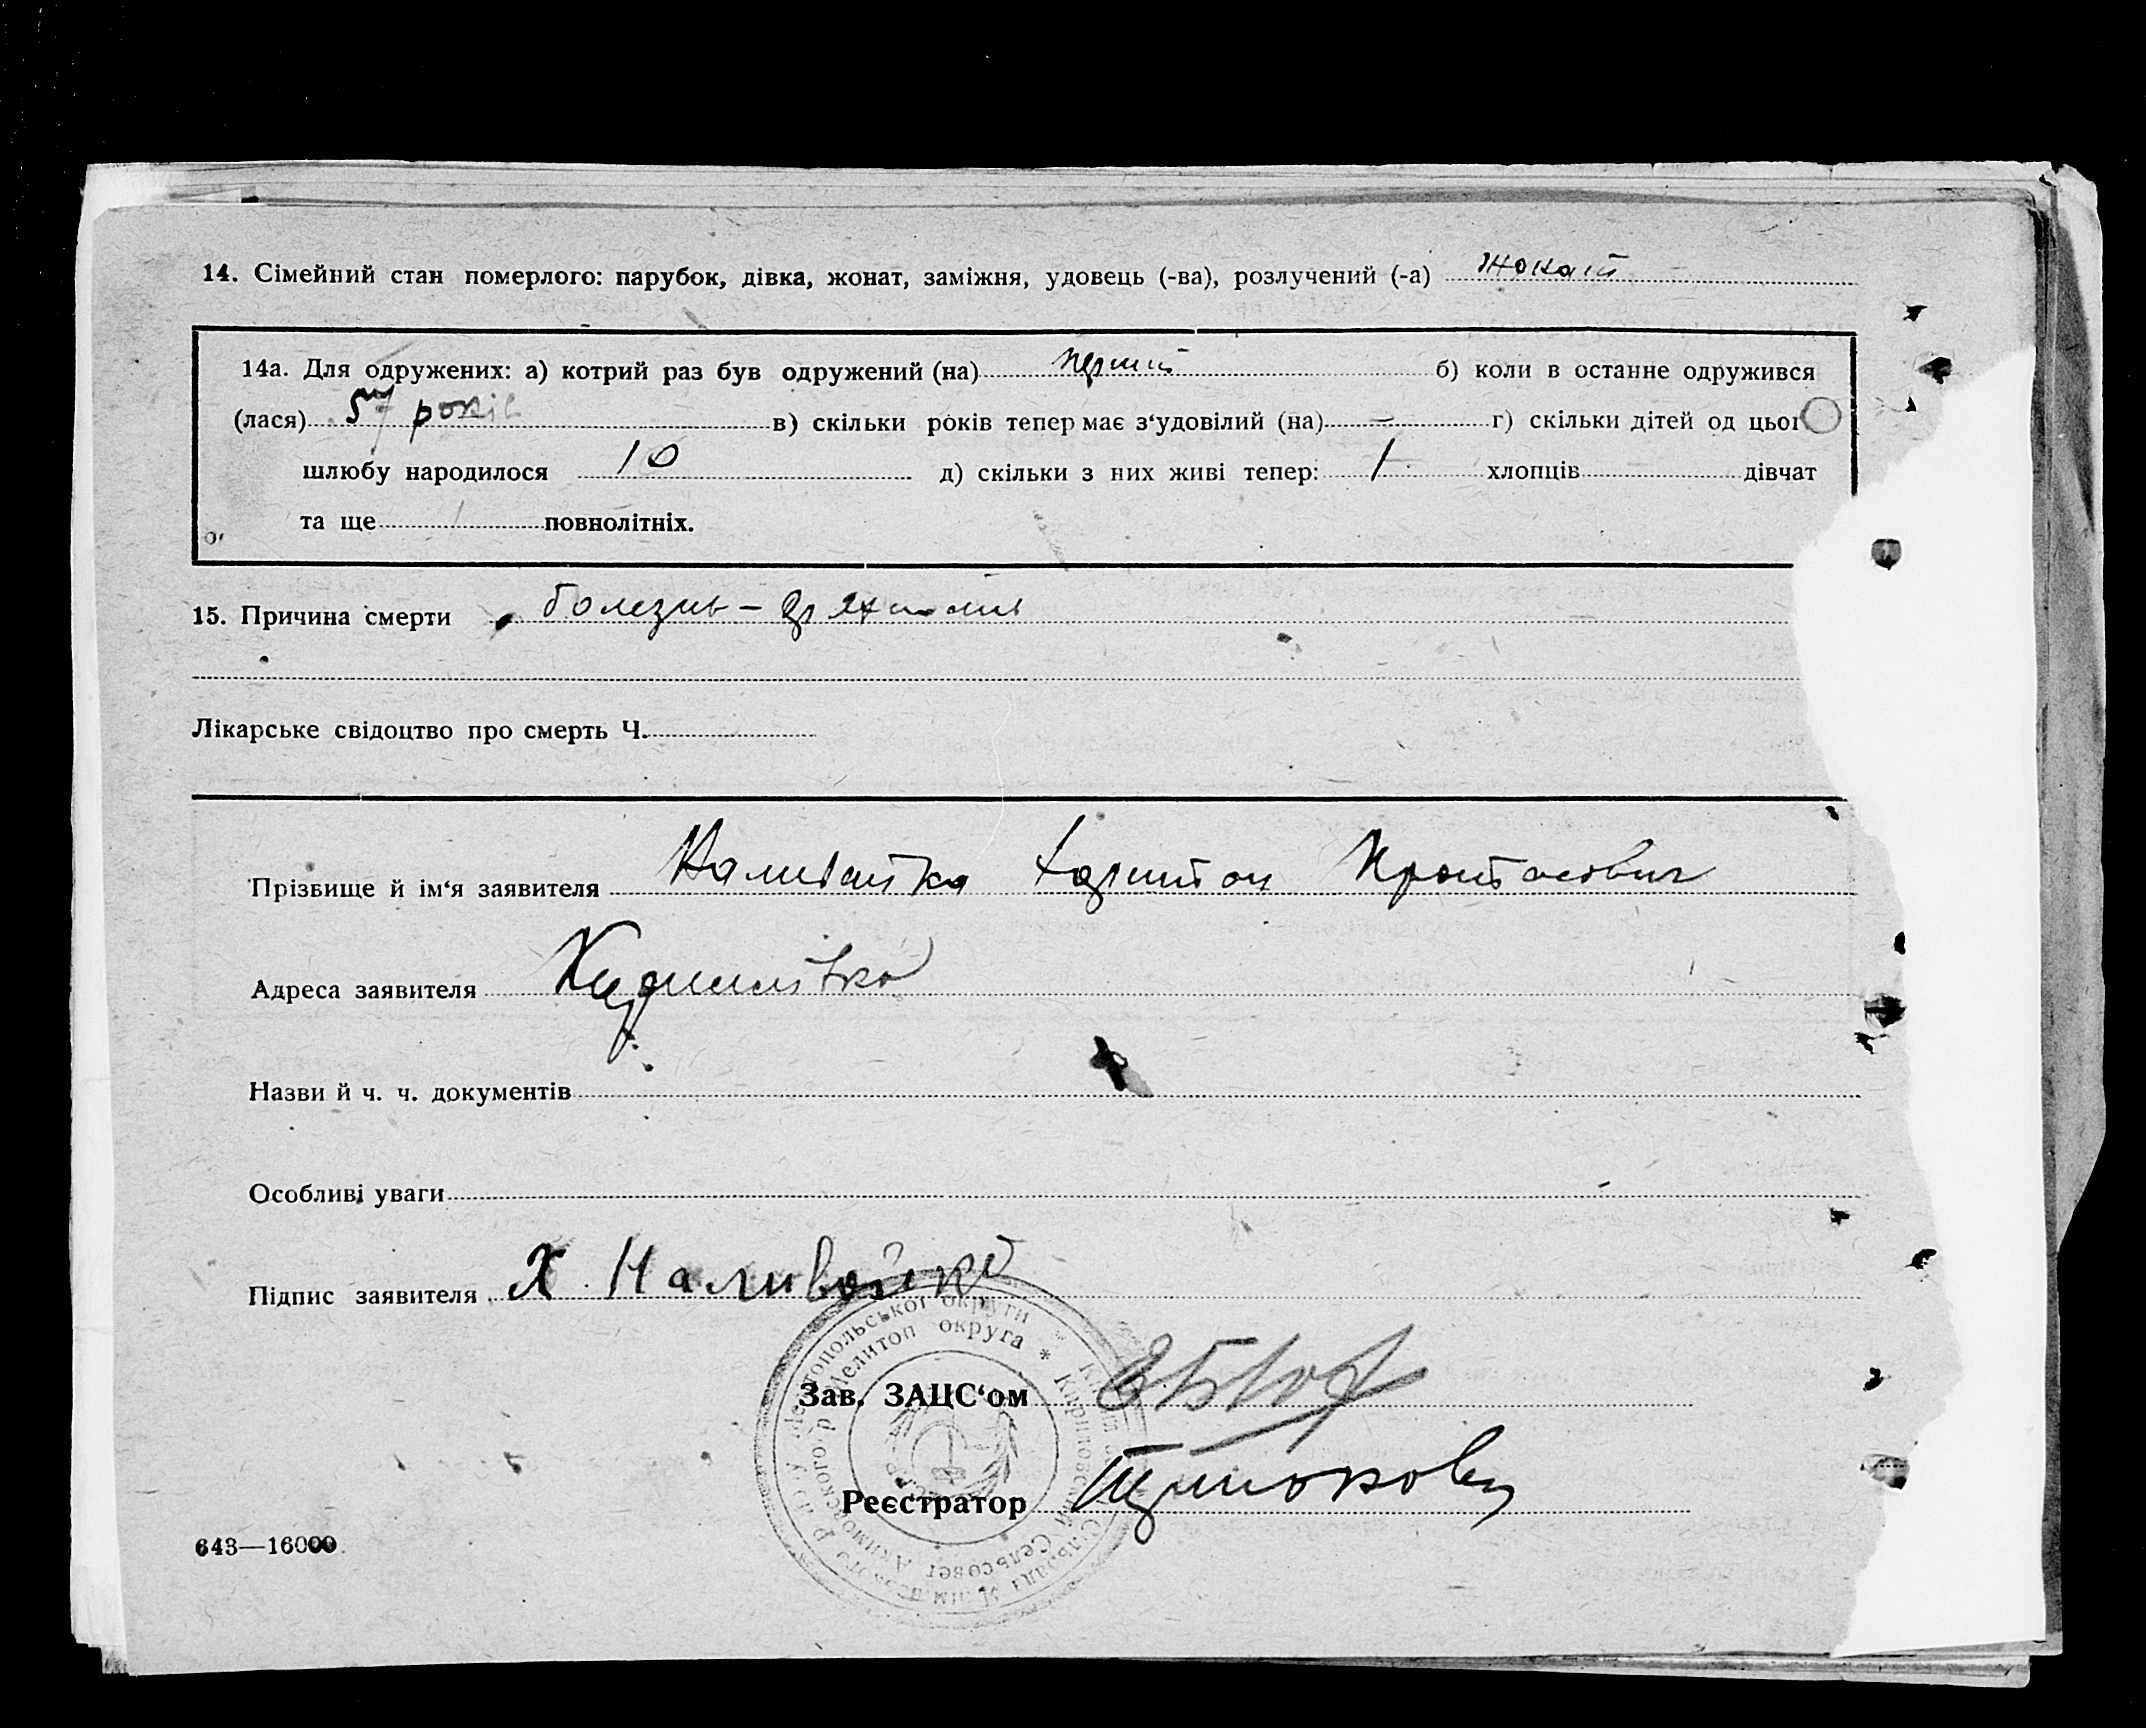 14. Сімейний стан померлого: парубок, дівка, жонат, заміжня, удовець (-ва), розлучений (-а) жонат
14а. Для одружених: а) котрий раз був одружений (на) перший б) коли в останне одружився
(лася) 57 років в) скільки років тепер має з‘удовілий (на) – г) скільки дітей од цього
шлюбу народилося 10 д) скільки з них живі тепер: 1 хлопців дівчат
та ще повнолітніх.
15. Причина смерти болезнь –
Лікарське свідоцтво про смерть Ч.
Прізвище й ім‘я заявителя Наливайко Харитон Протасович
Адреса заявителя Кирилівка
Назви й ч. ч. документів
Особливі уваги
Підпис заявителя Х Наливайко
Зав. ЗАЦС‘ом
Реєстратор
643—16000
Мелитопольської округи * Сільрада
Мелитоп округа * Кириловский Сельсовет Акимовского р